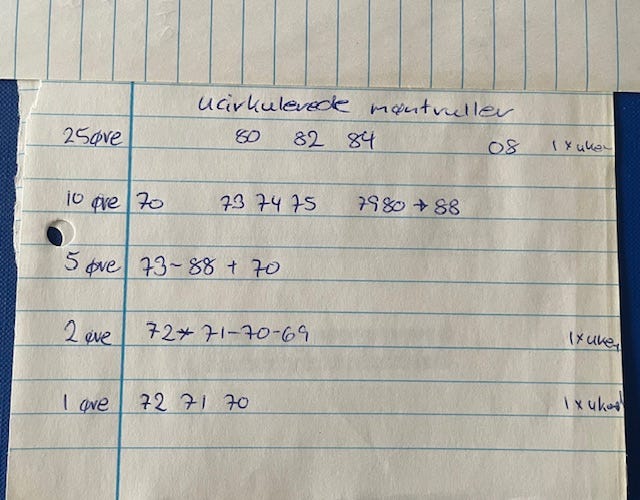 ucirkulerede møntruller
25øre 80 82 84 08 1 x uken
10 øre 70 73 74 75 79 80 → 88
5 øre 73-88 + 70
2 øre 72 71-70-69 1x uken
1 øre 72 71 70 1 x ukend